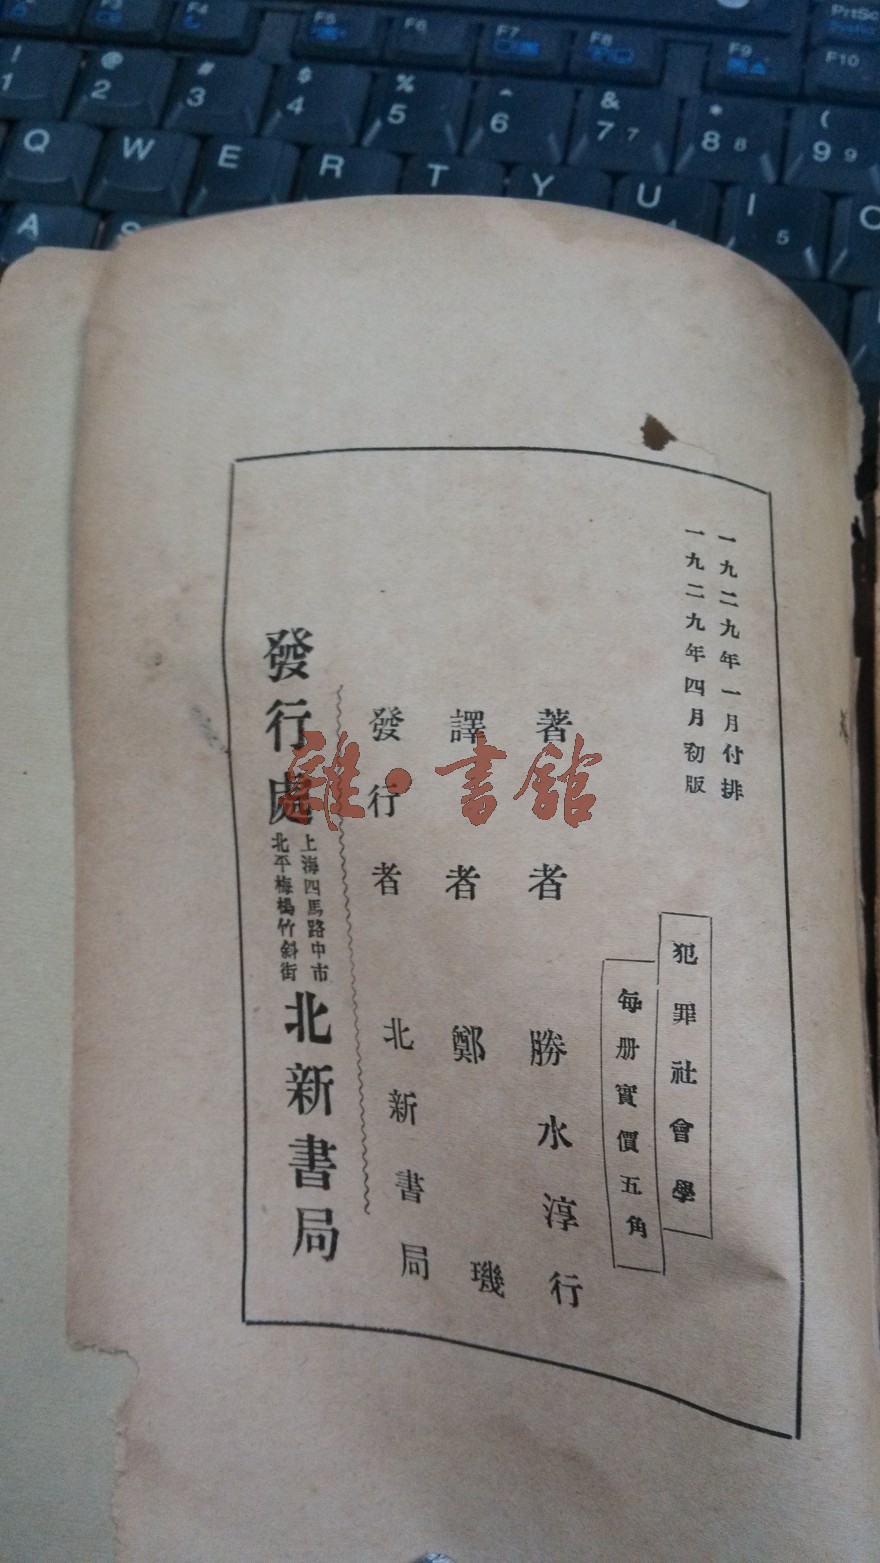 一九二九年一月付排
一九二九年四月初版
犯罪社會學
每册實價五角
著者 勝水淳行
譯者 鄭璣
發行者 北新書局
發行處 上海四馬路中市 北平梅楊竹斜街 北新書局
雜·書館
F3
F4
F5
F6
F7
F8
F9
PrtSc
F10
! 1
@ 2
# 3
$ 4
% 5
^ 6
& 7 7
* 8 8
( 9 9
Q W E R T Y U I
A
5